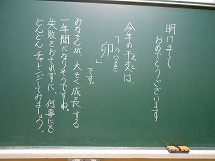 明けまして
おめでとうございます
今年の干支は、
「卯」
です。
みなさんが大きく成長する
一年間になりそうですね。
失敗をおそれずに、何事にも
どんどんチャレンジしてみましょう。